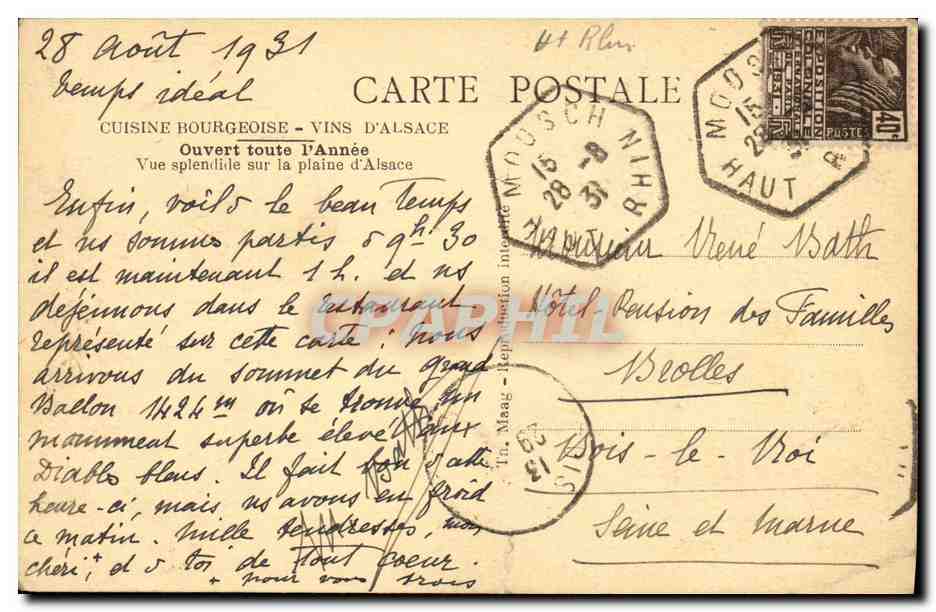 28 Août 1931
temps idéal
Ht Rhin
CARTE POSTALE
CUISINE BOURGEOISE - VINS D'ALSACE
Ouvert toute l'Année
Vue splendide sur la plaine d'Alsace
Enfin, voilà le beau temps
et ns sommes partis à 9h 30
il est maintenant 1 h. et ns
déjeunons dans le restaurant
représenté sur cette carte ; nous
arrivons du sommet du grand
Ballon 1424m où se trouve un
monument superbe élevé aux
Diables bleus. Il fait bon à cette
heure-ci, mais ns avons eu froid
ce matin. Mille tendresses, mon
chéri,+ et à toi de tout coeur.
+ pour vous trois
Th. Maag - Reproduction interdite
MOOSCH
15 -8
28 31
HT RHIN
MOOS
15
28 31
HAUT R
EXPOSITION COLONIALE INTERNATIONALE
PARIS 1931
POSTES
40c
Monsieur René Bath
Hôtel-Pension des Familles
Brolles
Bois-le-Roi
Seine et Marne
13
29
SI
CPAPHIL